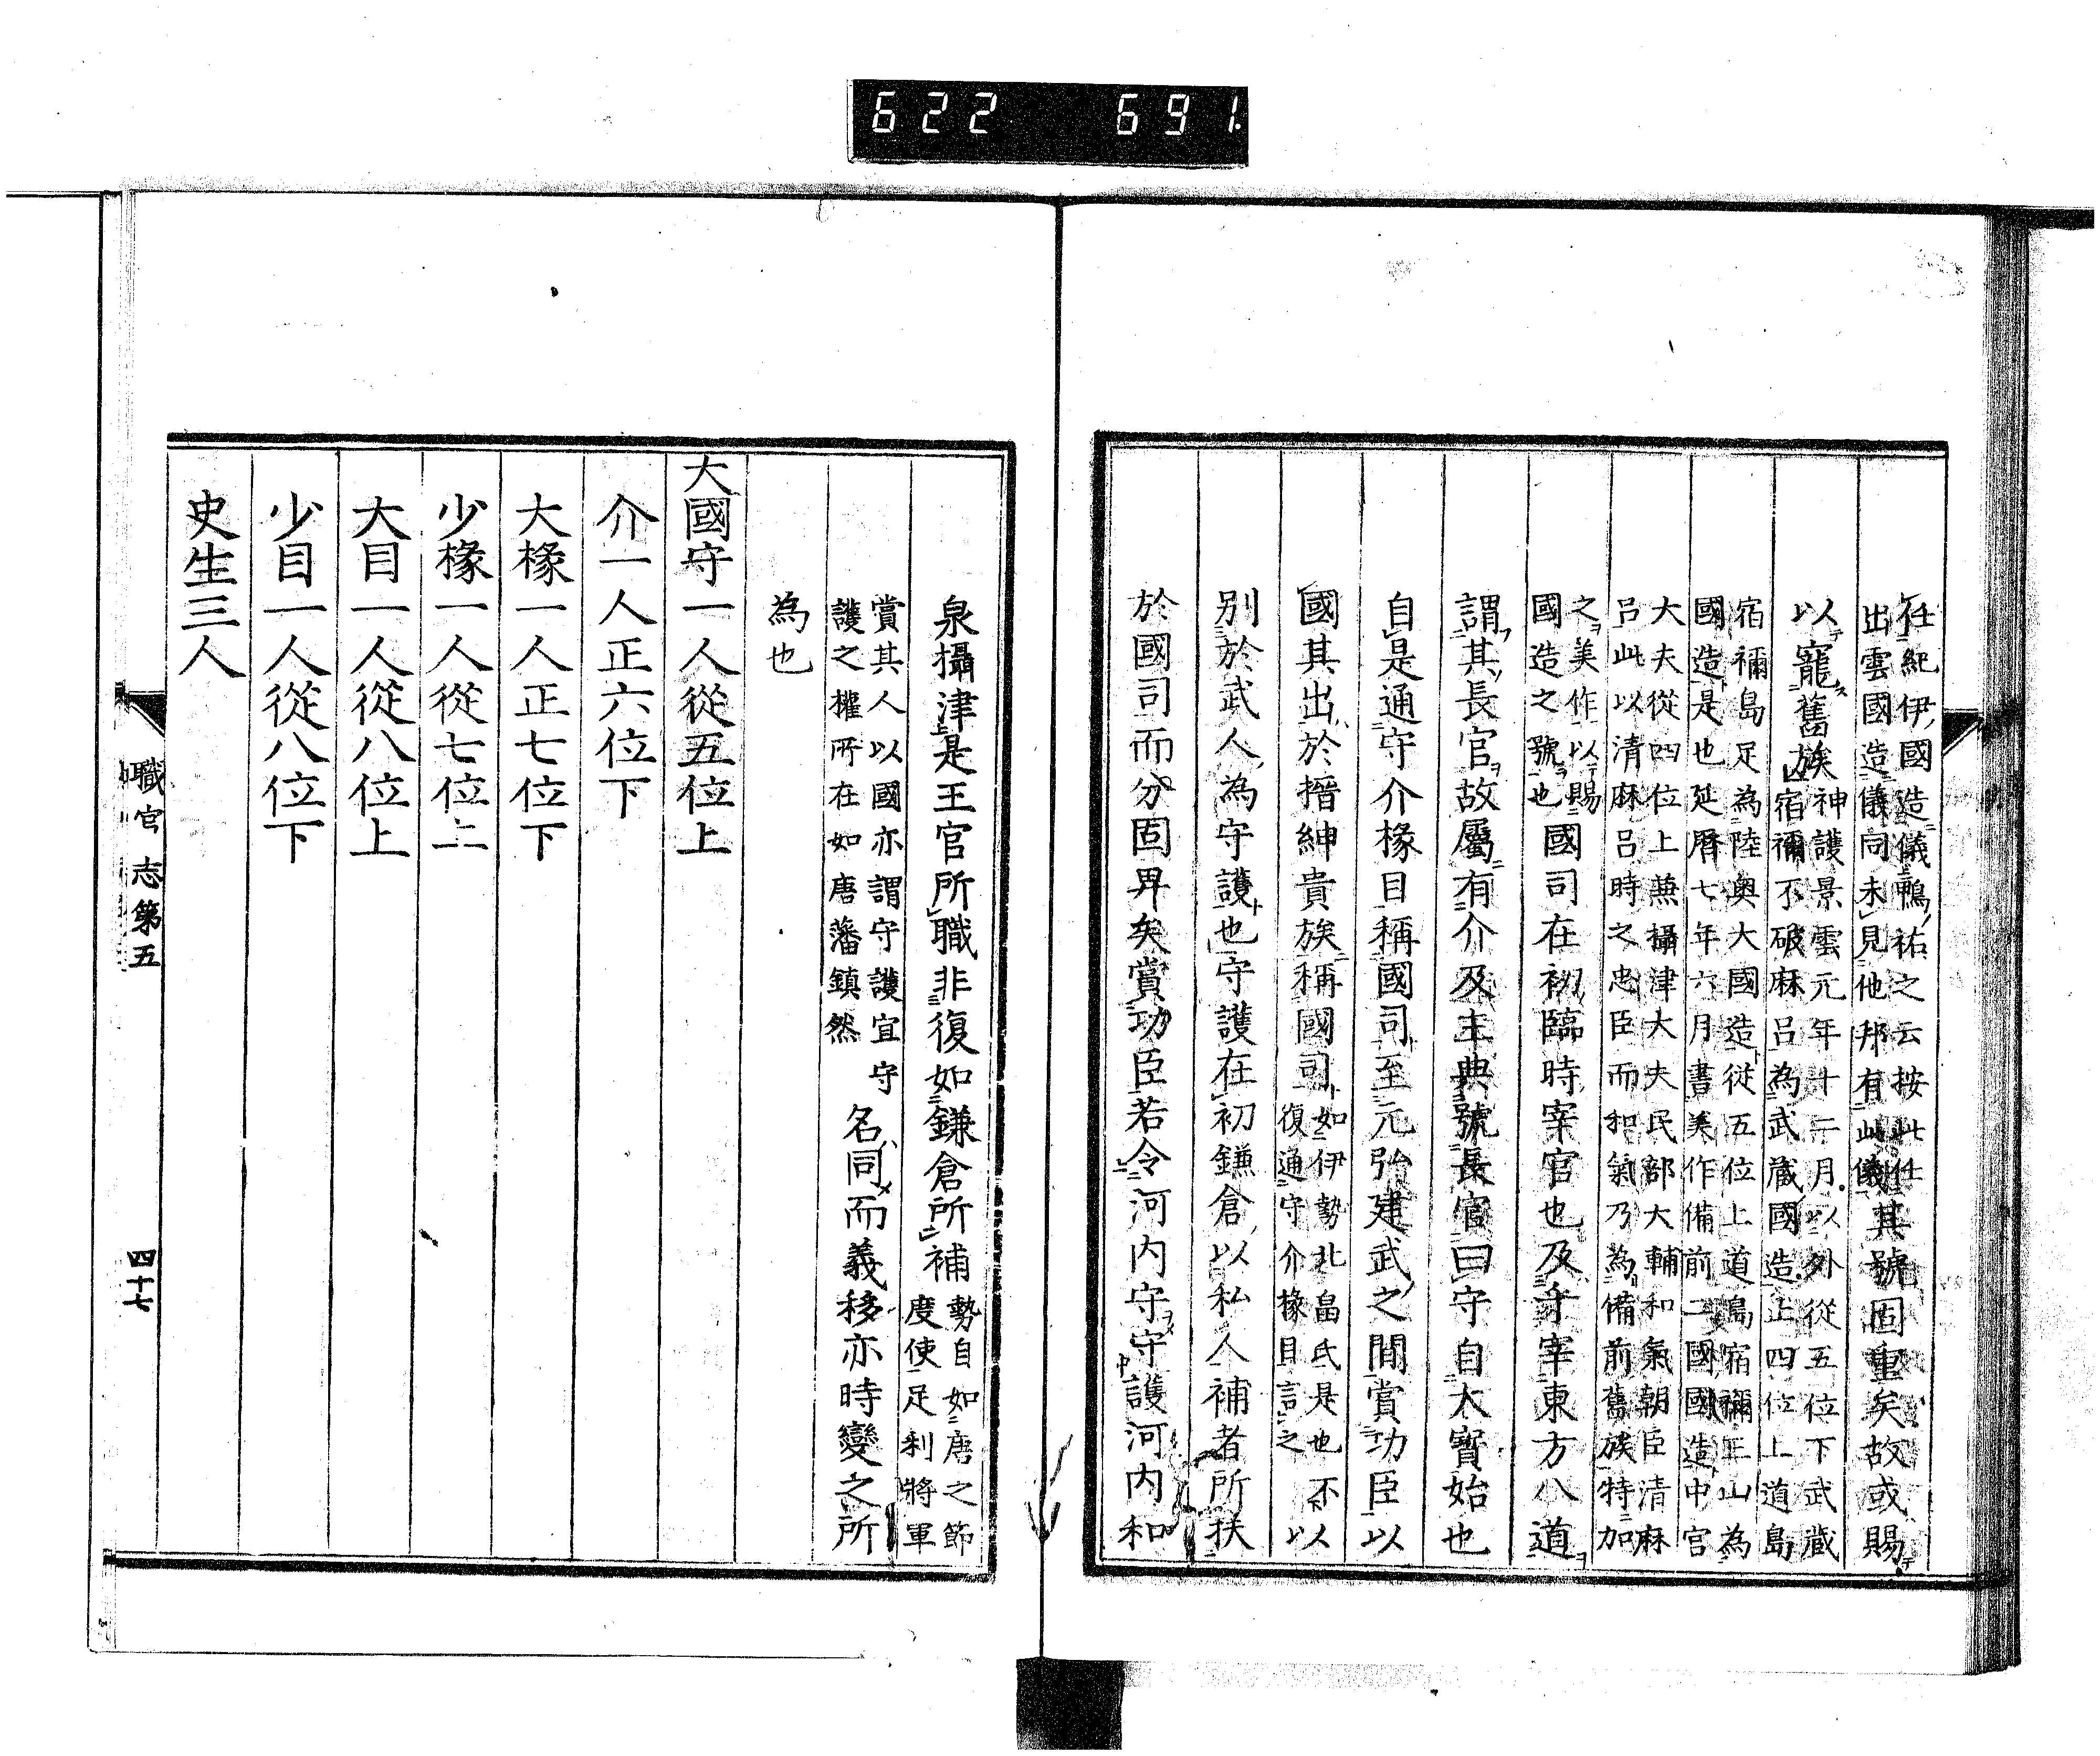 622 691.
任紀伊國造儀鴨祐之云按此任
出雲國造儀同未見他邦有此儀
其號固重矣故或賜
以寵舊族
神護景雲元年十二月以外從五位下武藏
宿禰不破麻呂為武藏國造正四位上道島
宿禰島足為陸奧大國造從五位上道島宿禰三山為
國造是也延曆七年六月書美作備前二國國造中宮
大夫從四位上兼攝津大夫民部大輔和氣朝臣清麻
呂此以清麻呂時之忠臣而和氣乃為備前舊族特加
之美作以賜
國造之號也
國司在初臨時宰官也及于宰東方八道
謂其長官故屬有介及主典號長官曰守自大寶始也
自是通守介椽目稱國司至元弘建武之間賞功臣以
國其出於搢紳貴族稱國司
如伊勢北畠氏是也不以
復通守介椽目言之
以
別於武人為守護也守護在初鎌倉以私人補者所扶
於國司而分固畀矣賞功臣若令河内守守護河内和
泉攝津是王官所職非復如鎌倉所補
勢自如唐之節
度使足利將軍
賞其人以國亦謂守護宜守
護之權所在如唐藩鎮然
名同而義移亦時變之所
為也
大國守一人從五位上
介一人正六位下
大椽一人正七位下
少椽一人從七位上
大目一人從八位上
少目一人從八位下
史生三人
職官志第五
四十七